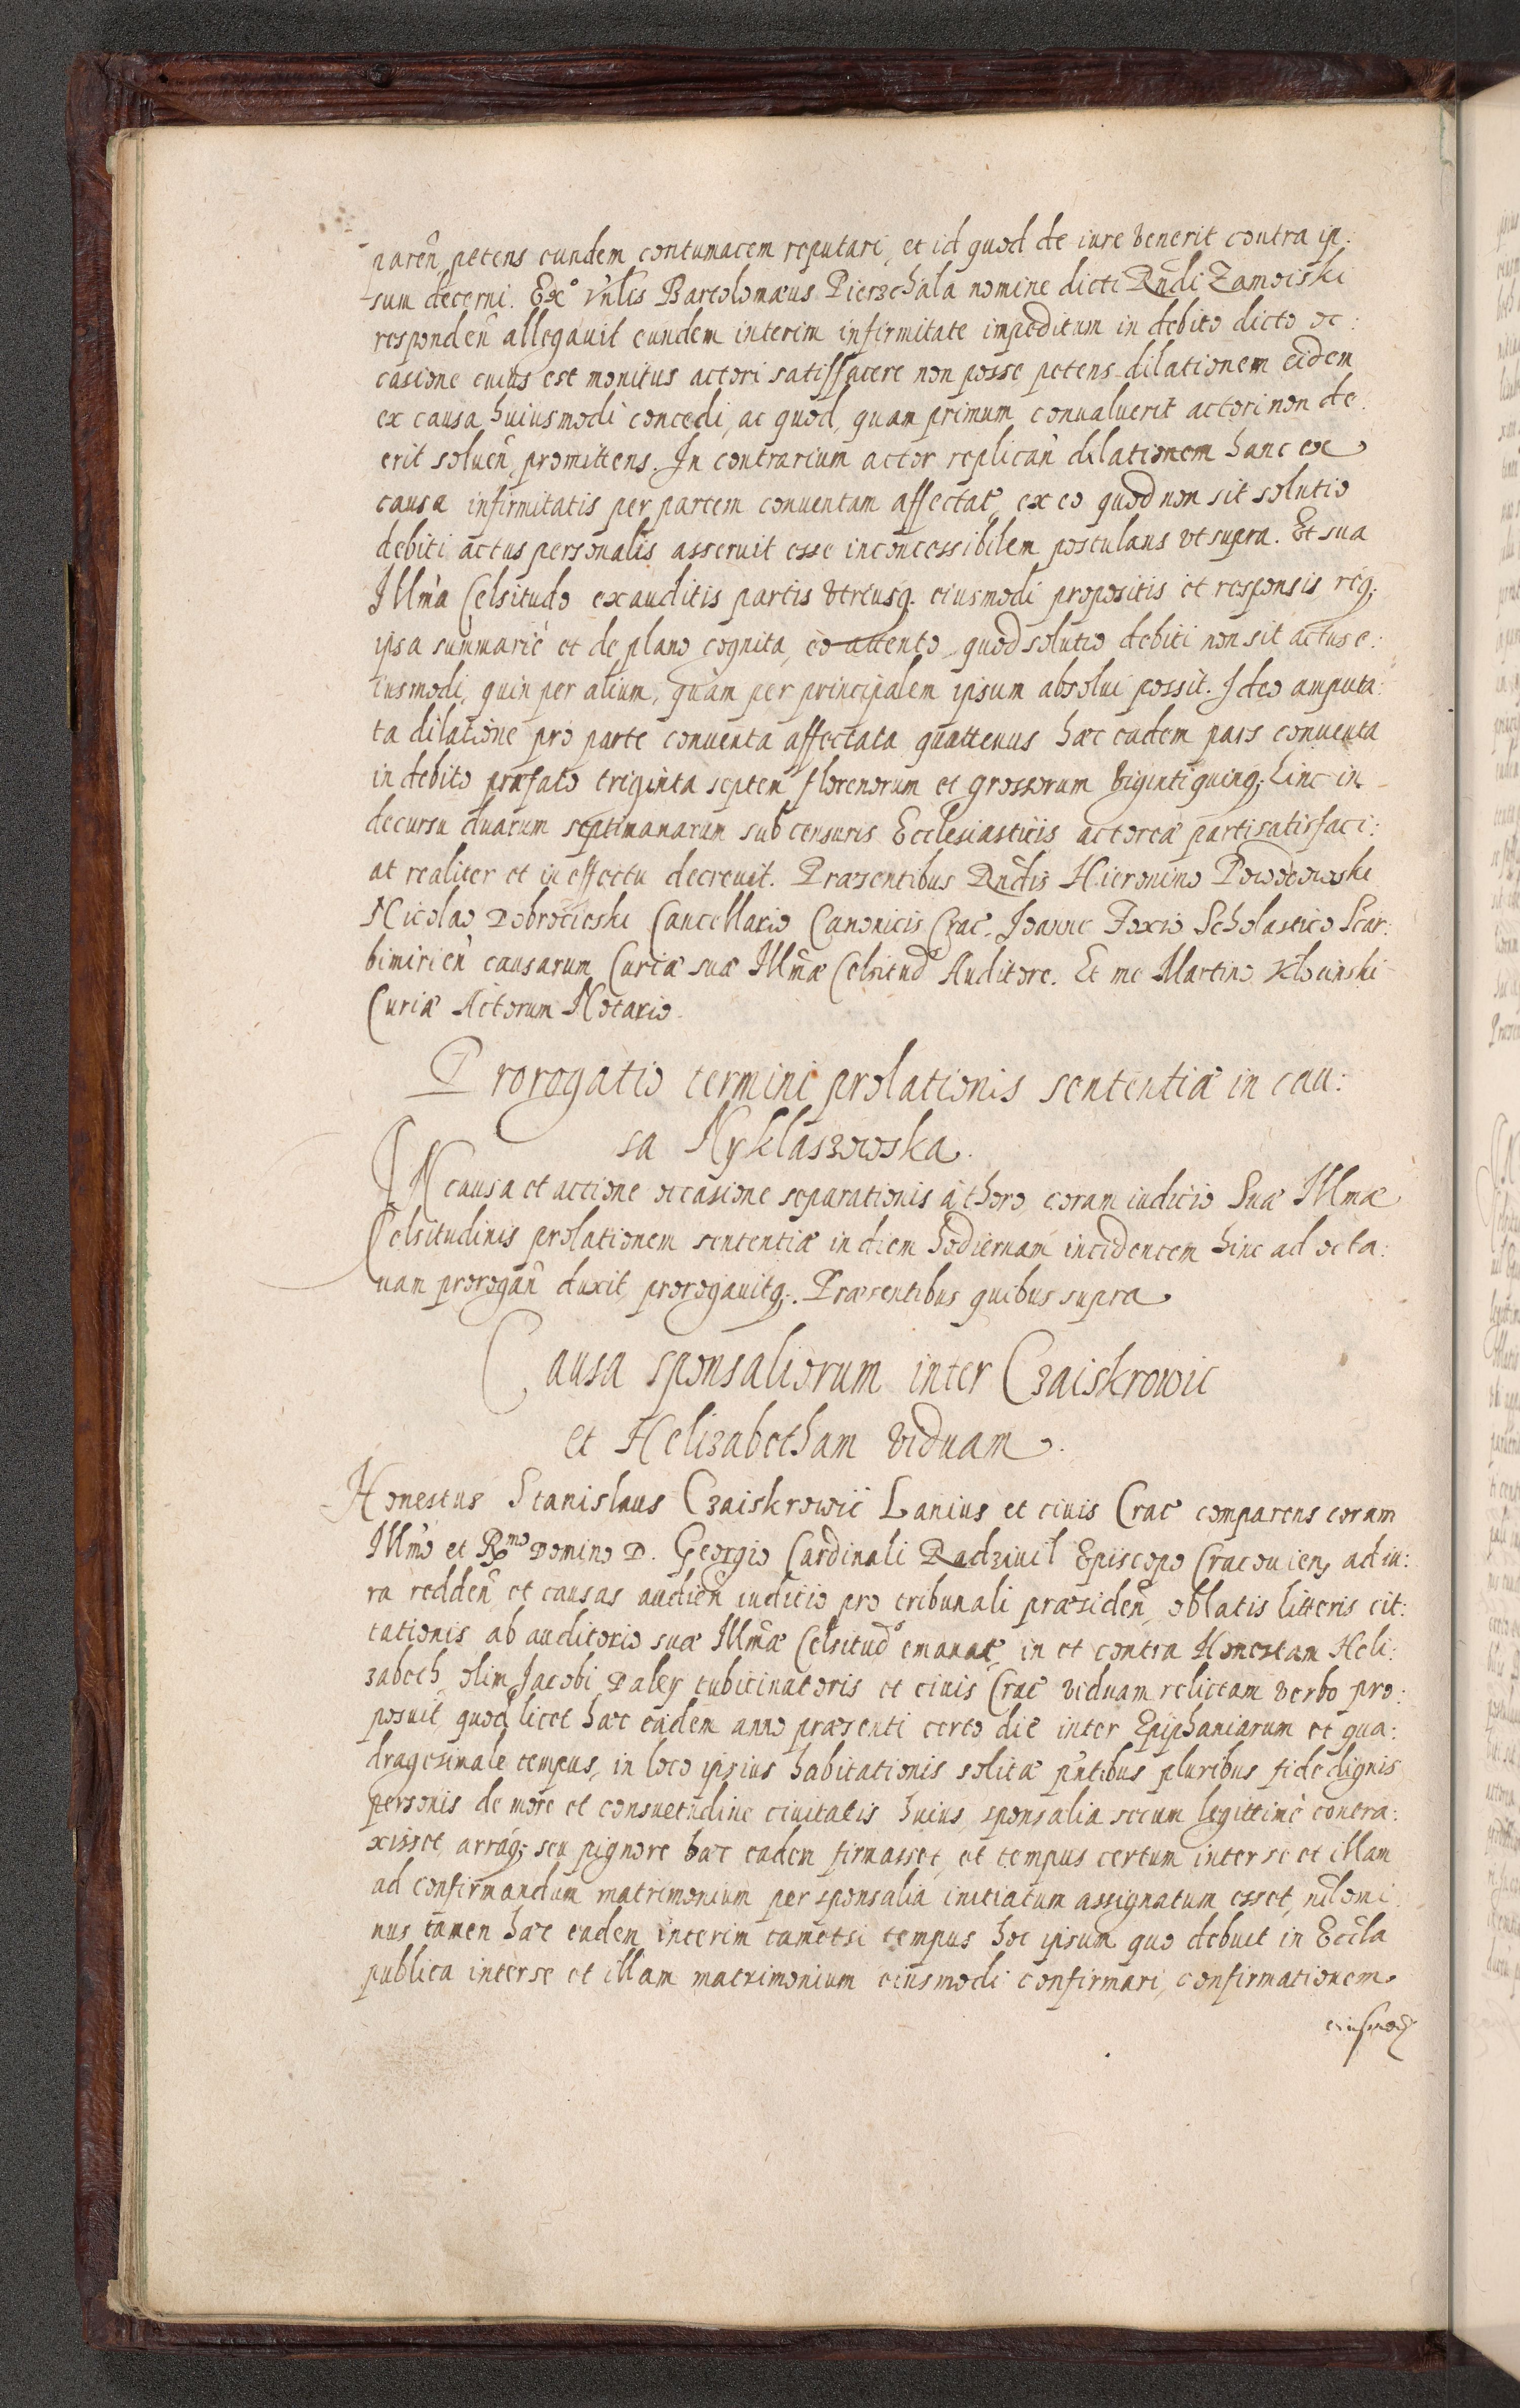 paren̄, petens eundem contumacem reputari, et id quod de iure venerit contra ip:
sum decerni. Exo Vn̄lis Bartolomæus Pierzchala nomine dicti Rn̄di Zamoiski
responden̄ allegauit eundem interim infirmitate impeditum in debito dicto oc:
casione cuius est monitus actori satisfacere non posse petens dilationem eidem
ex causa huiusmodi concedi, ac quod, quam primum conualuerit actori non de:
erit soluen̄, promittens. In contrarium actor replican̄ dilationem hanc ex
causa infirmitatis per partem conuentam affectat̄, ex eo quod non sit solutio
debiti actus personalis asseruit esse inconcessibilem postulans vt supra. Et sua
Illm̄a Celsitudo exauditis partis vtriusq. eiusmodi propositis et responsis req;
ipsa summariè et de plano cognita, eo attento quod solutio debiti non sit actus e:
iusmodi, quin per alium, quàm per principalem ipsum absolui possit. Ideo amputa:
ta dilatione pro parte conuenta affectata quattenus hæc eadem pars conuenta
in debito præfato triginta septem florenorum et grossorum viginti quinq; hinc in
decursu duarum septimanarum sub censuris Ecclesiasticis actoreæ parti satisfaci:
at realiter et in effectu decreuit. Præsentibus Rn̄dis Hieronimo Powodowski
Nicolao Dobrocieski Cancellario Canonicis Crac̄. Joanne Foxio Scholastico Scar:
bimirien̄ causarum Curiæ suæ Illm̄æ Celsitud Auditore. Et me Martino Kłocinski
Curiæ Actorum Notario.
Prorogatio termini prolationis sententiæ in cau:
sa Nyklaszowska.
IN causa et actione occasione separationis à thoro coram iudicio Suæ Illmæ
Celsitudinis prolationem sententiæ in diem hodiernam incidentem hinc ad octa:
uam prorogan̄ duxit prorogauitq;. Præsentibus quibus supra
Causa sponsaliorum inter Czaiskrowic
et Helizabetham viduam.
Honestus Stanislaus Czaiskrowic Lanius et ciuis Crac̄ comparens coram
Illm̄o et Rmo Domino D. Georgio Cardinali Radziuil Episcopo Cracouien, ad iu:
ra redden̄ et causas audien̄ iudicio pro tribunali præsiden̄, oblatis litteris cit:
tationis ab auditorio suæ Illm̄æ Celsitud emanat̄, in et contra Honestam Heli:
zabeth, olim Jacobi Daley tubicinatoris et ciuis Crac̄ viduam relictam verbo pro:
posuit, quod licet hæc eadem anno præsenti certo die inter Epiphaniarum et qua:
dragesimale tempus, in loco ipsius habitationis solitæ pn̄tibus pluribus fide dignis
personis de more et consuetudine ciuitatis huius sponsalia secum legittimè contra:
xisset, arráq; seu pignore hæc eadem firmasset, et tempus certum inter se et illam
ad confirmandum matrimonium per sponsalia initiatum assignatum esset, nilomi
nus tamen hæc eadem interim tametsi tempus hoc ipsum quo debuit in Eccl̄a
publica inter se et illam matrimonium eiusmodi confirmari, confirmationem
eiusmodi